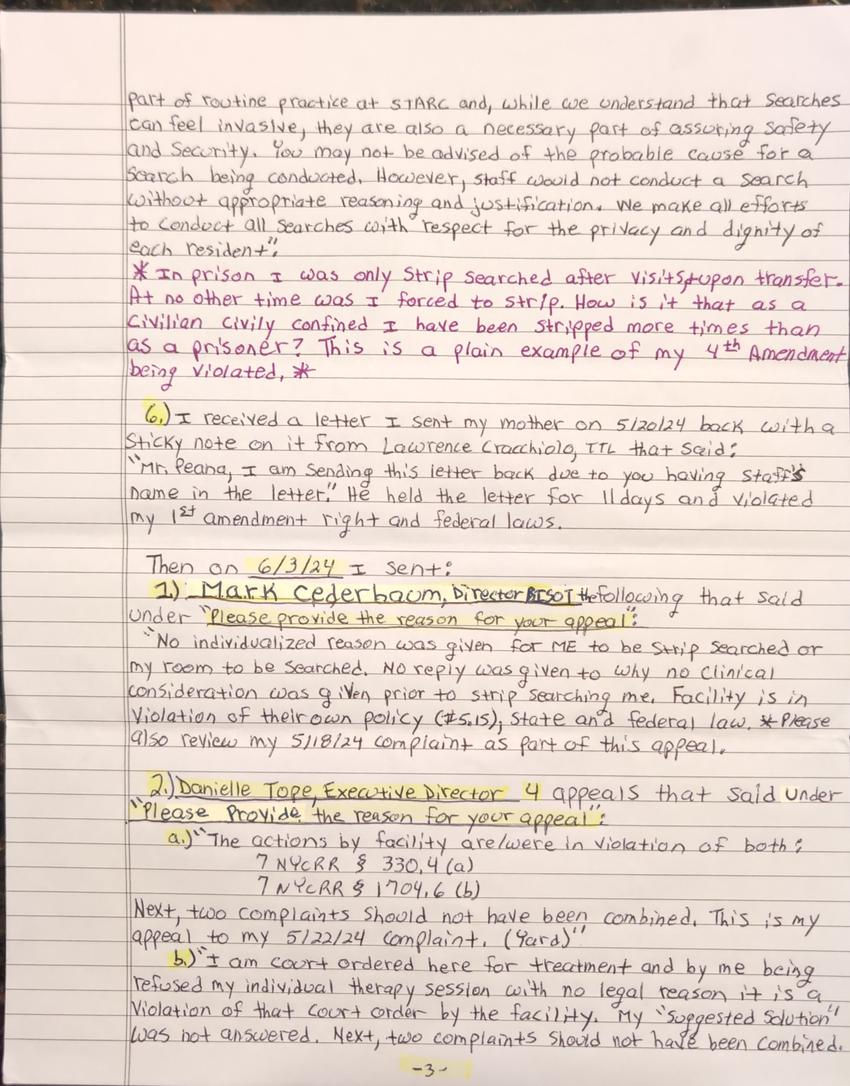 part of routine practice at STARC and, while we understand that searches
can feel invasive, they are also a necessary part of assuring safety
and security. You may not be advised of the probable cause for a
search being conducted. However, staff would not conduct a search
without appropriate reasoning and justification. We make all efforts
to conduct all searches with respect for the privacy and dignity of
each resident".
* In prison I was only strip searched after visits + upon transfer.
At no other time was I forced to strip. How is it that as a
civilian civily confined I have been stripped more times than
as a prisoner? This is a plain example of my 4th Amendment
being violated, *
6.) I received a letter I sent my mother on 5/20/24 back with a
sticky note on it from Lawrence Cracchiolo, TTL that said:
"Mr. Peana, I am sending this letter back due to you having staff's
name in the letter." He held the letter for 11 days and violated
my 1st amendment right and federal laws.
Then on 6/3/24 I sent:
1.) Mark Cederbaum, Director BISOT the following that said
under "Please provide the reason for your appeal":
"No individualized reason was given for ME to be strip searched or
my room to be searched. No reply was given to why no clinical
consideration was given prior to strip searching me. Facility is in
violation of their own policy (#5.15), state and federal law. * Please
also review my 5/18/24 complaint as part of this appeal.
2.) Danielle Tope, Executive Director 4 appeals that said under
"Please Provide the reason for your appeal":
a.) "The actions by facility are/were in violation of both:
7 NYCRR § 330.4 (a)
7 NYCRR § 1704.6 (b)
Next, two complaints should not have been combined. This is my
appeal to my 5/22/24 complaint. (Yard)"
b.) "I am court ordered here for treatment and by me being
refused my individual therapy session with no legal reason it is a
violation of that court order by the facility. My "Suggested Solution"
was not answered. Next, two complaints should not have been combined.
-3-